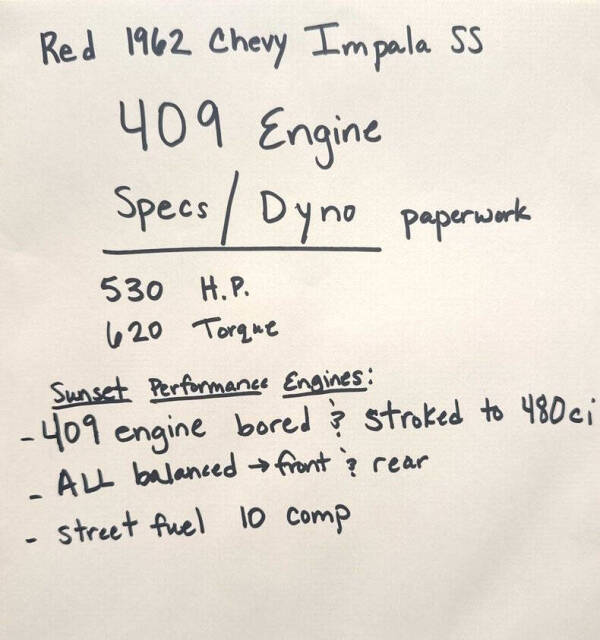 Red 1962 Chevy Impala SS
409 Engine
Specs / Dyno paperwork
530 H.P.
620 Torque
Sunset Performance Engines:
- 409 engine bored & stroked to 480ci
- ALL balanced → front & rear
- street fuel 10 comp